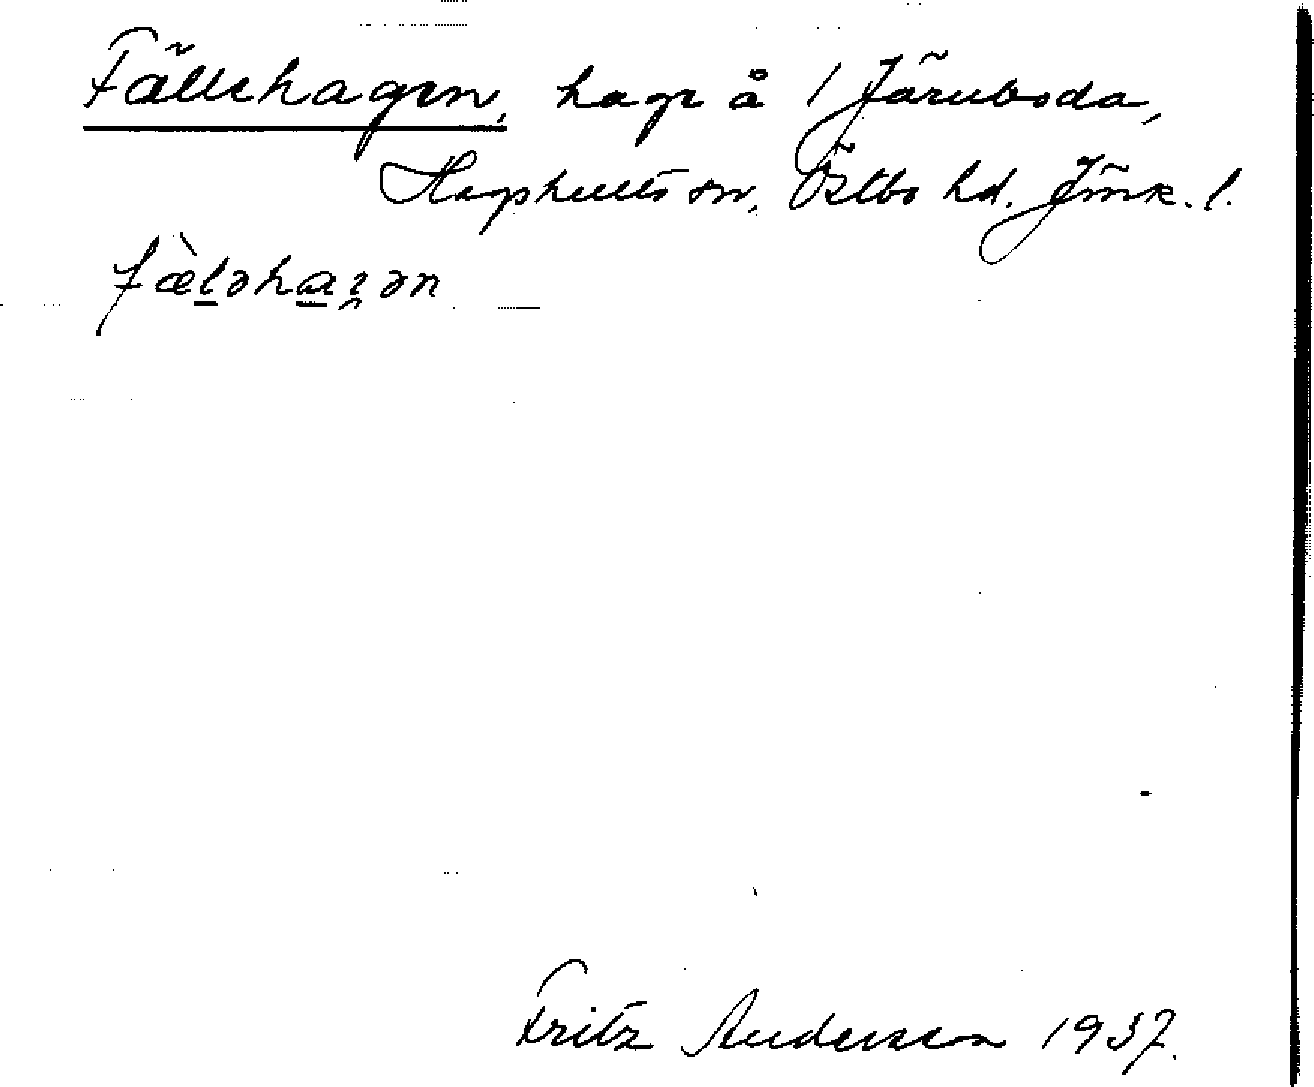 Fällehagen, hage å 1 Järuboda,
Hagshults sn, Östbo hd. Jönk. l.
fæ̀lǝhaɡǝn
Fritz Andersson 1937.